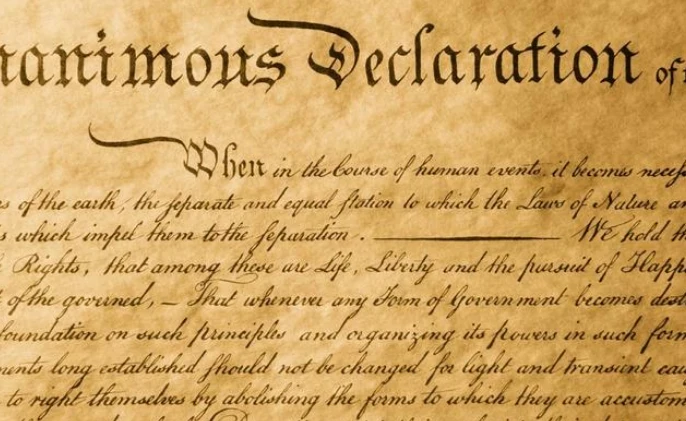 nanimous Declaration of t
When in the Course of human events, it becomes necess
rs of the earth, the separate and equal station to which the Laws of Nature an
s which impel them to the separation. ——— We hold th
Rights, that among these are Life, Liberty and the pursuit of Happ
t of the governed, — That whenever any Form of Government becomes dest
foundation on such principles and organizing its powers in such form
ments long established should not be changed for light and transient cau
to right themselves by abolishing the forms to which they are accustom